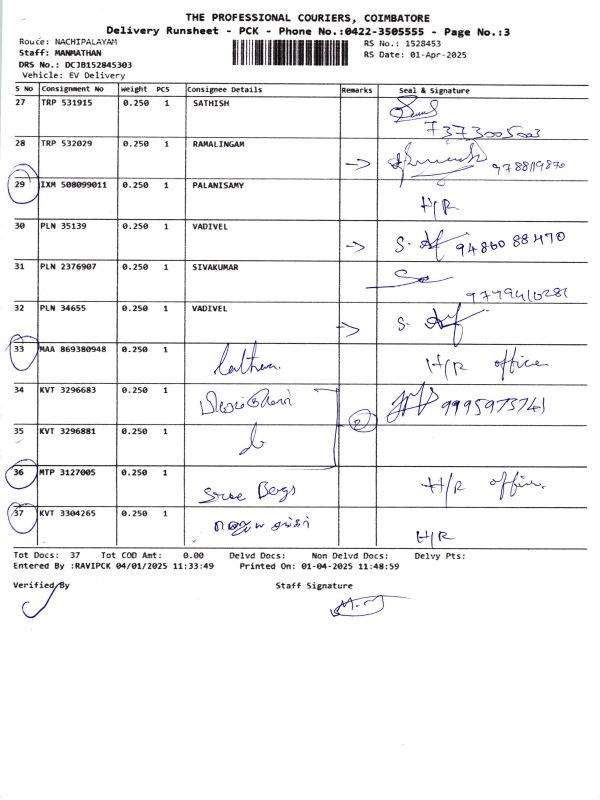 THE PROFESSIONAL COURIERS, COIMBATORE
Delivery Runsheet - PCK - Phone No.:0422-3505555 - Page No.:3
Route: NACHIPALAYAM
RS No.: 1528453
Staff: MANMATHAN
RS Date: 01-Apr-2025
DRS No.: DCJB152845303
Vehicle: EV Delivery
S No Consignment No Weight PCS Consignee Details Remarks Seal & Signature
27 TRP 531915 0.250 1 SATHISH
7373005003
28 TRP 532029 0.250 1 RAMALINGAM
9788119870
29 IXM 508099011 0.250 1 PALANISAMY
H/R
30 PLN 35139 0.250 1 VADIVEL
9486088470
31 PLN 2376907 0.250 1 SIVAKUMAR
32 PLN 34655 0.250 1 VADIVEL
33 MAA 869380948 0.250 1 H/R office
34 KVT 3296683 0.250 1
35 KVT 3296881 0.250 1
36 MTP 3127005 0.250 1 H/R office
37 KVT 3304265 0.250 1
H/R
Tot Docs: 37 Tot COD Amt: 0.00 Delvd Docs: Non Delvd Docs: Delvy Pts:
Entered By :RAVIPCK 04/01/2025 11:33:49 Printed On: 01-04-2025 11:48:59
Verified By Staff Signature